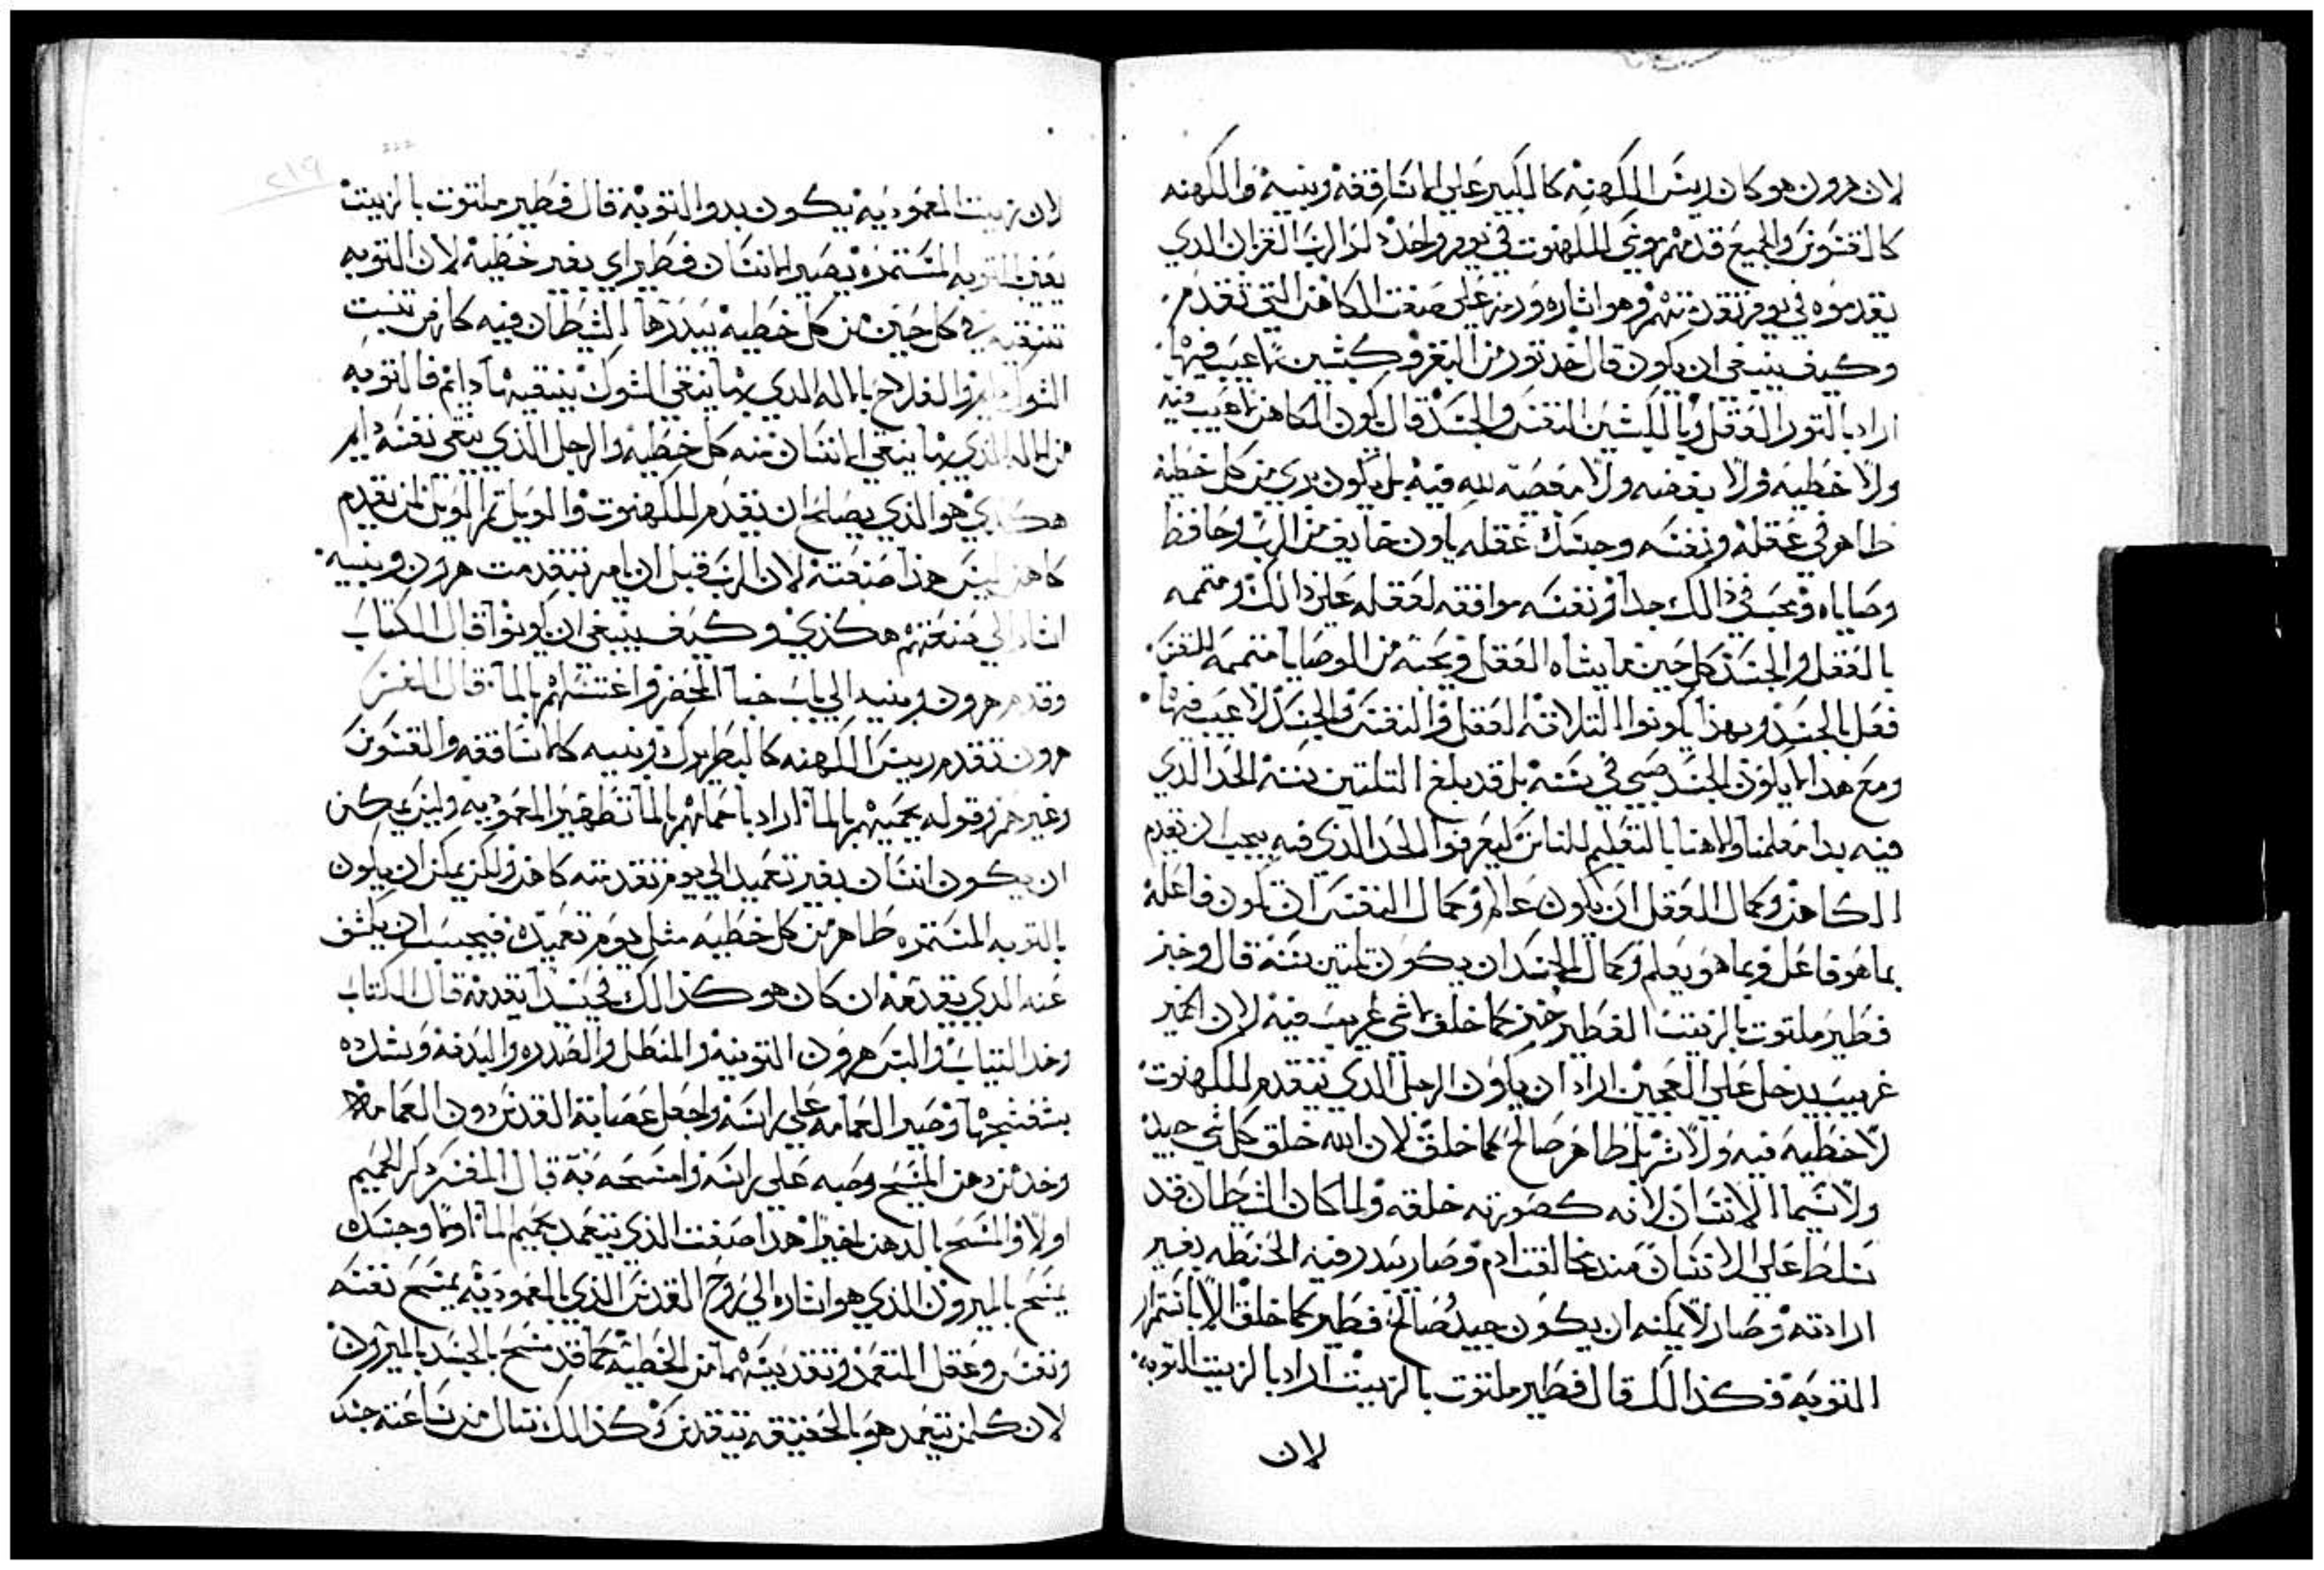 لان هرون هو كان ريس الكهنه كالكبير علي الاساقفه وبنيه والكهنه
كالقسوس والجميع قدمهم موسي للكهنوت في يوم واحد لذا الرب القران الدي
يقدموه في يوم تقدمتهم وهو اشاره ورمز علي صنعت الكاهن التي تقدم
وكيف ينبغي ان يكون قال خد تور من البقر وكبشين لا عيب فيها
اراد بالتور العقل وبالكبشين النفس والجسد قال يكون الكاهن لا عيب فيه
ولا خطيه ولا بغضه ولا معصيه لله فيه بل يكون بري من كل خطيه
طاهر في عقله ونفسه وجسده عقله يكون خايف من الرب وحافظ
وصاياه ومحب في ذالك جدا ونفسه موافقه لعقله علي ذالك ومتممه
بالفعل والجسد كل حين ما يشاه العقل ويحبه من الوصايا متممه النفس
فعل بالجسد وبهذا يكونوا التلاته العقل والنفس والجسد لا عيب فيها
ومع هدا لا يكون الجسد صبي في سنه بل قد بلغ التلتين سنه الحد الدي
فيه بدا معلمنا والاهنا بالتعليم للناس ليعرفوا الحد الذي فيه يجب ان يقدم
الكاهن وكمال العقل ان يكون عالم وكمال النفس ان تكون فاعله
بما هو فاعل وبما هو يعلم وكمال الجسد ان يكون تلتين سنه قال وخبز
فطير ملتوت بالزيت الفطير خبز كما خلق لا شي غريب فيه لان الخمير
غريب يدخل علي العجين اراد ان يكون الرجل الدي يتقدم للكهنوت
لا خطيه فيه ولا شر بل طاهر صالح كما خلق لان الله خلق كل شي جيد
ولا سيما الانسان لانه كصورته خلقه ولما كان الشيطان قد
تسلط علي الانسان مند مخالفت ادم وصار يبدر فيه الحنطه بغير
ارادته وصار لا يمكنه ان يكون جيد صالح فطير كما خلق الا باستمرار
التوبه فكذالك قال فطير ملتوت بالزيت اراد بالزيت التوبه
لان
لان زيت المعموديه يكون بدو التوبه قال فطير ملتوت بالزيت
يعني التوبه المستمره يصير الانسان فطير اي بغير خطيه لان التوبه
تنقيه في كل حين من كل خطيه يبدرها الشيطان فيه كارض تنبت
الشوك والفلاح بالاله الدي بها ينقي الشوك ينقيها دايم فالتوبه
من الاله الذي بها ينقي الانسان منه كل خطيه والرجل الذي ينقي نفسه دايم
هكذي هو الذي يصلح ان يقدم للكهنوت والويل تم الويل لمن يقدم
كاهن ليس هذا صنعته لان الرب قبل ان يامر بتقدمت هرون وبنيه
اشار الي صنعتهم هكذي وكيف ينبغي ان يكونوا قال الكتاب
وقدم هرون وبنيه الي باب خبا المحضر واغتسلهم بالما قال المفسر
هرون تقدم ريس الكهنه كالبطريرك وبنيه كالاساقفه والقسوس
وغيرهم وقوله يحميهم بالما اراد باحماهم بالما تطهير المعموديه وليس يمكن
ان يكون انسان بغير تعميد الي يوم تقدمته كاهن ولكن يمكن ان يكون
بالتوبه المستمره طاهر من كل خطيه مثل يوم تعميده فيجب ان يكشف
عنه الدي يقدمه ان كان هو كذالك فحينيدا يقدمه قال الكتاب
وخد التياب والبس هرون التونيه والمنطل والصدره والبدنه وتشده
بشفشجها وصير العمامه علي راسه واجعل عصابة القدس دون العمامه
وخد من دهن المسح وصبه علي راسه وامسحه به قال المفسر ذكر الحميم
اولا والمسح بالدهن اخيرا هدا صنعت الذي يتعمد يحميم الما اولا وجسده
يمسح بالميرون الذي هو اشاره الي روح القدس الذي بالمعموديه يمسح نفسه
ونفس وعقل المتعمد وتقديسهما من الخطيه كما قد مسح بالجسد بالميرون
لان كلمن يتعمد هو بالحقيقه يتقدس وكذالك ينال من ساعته جسد